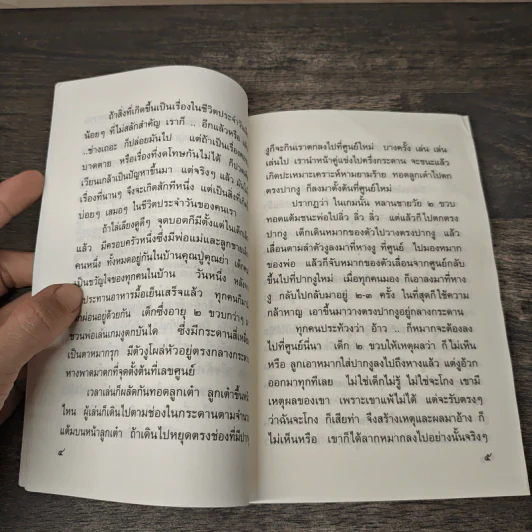 ถ้าสิ่งที่เกิดขึ้นเป็นเรื่องในชีวิตประจำวัน
น้อยๆ ที่ไม่สลักสำคัญ เราก็ .. อีกแล้วหรือ
..ช่างเถอะ ก็ปล่อยมันไป แต่ถ้าเป็นเรื่อง
บาดตาย หรือเรื่องที่งดโทษกันไม่ได้
เวียนเกล้าเป็นปัญหาขึ้นมา แต่จริงๆ แล้ว
เรื่องที่นานๆ จึงจะเกิดสักทีหนึ่ง แต่เป็นสิ่งที่
บ่อยๆ เสมอๆ ในชีวิตประจำวันของคนเรา
ถ้าใส่เลี่ยงดูดีๆ จุดบอดก็มีตั้งแต่ในเด็ก
แล้ว มีครอบครัวหนึ่งซึ่งมีพ่อแม่และลูกชาย
คนหนึ่ง ทั้งหมดอยู่กันในบ้านคุณปู่คุณย่า
เป็นขวัญใจของทุกคนในบ้าน วันหนึ่ง
ประทานอาหารมื้อเย็นเสร็จแล้ว ทุกคน
ผ่อนอยู่ด้วยกัน เด็กซึ่งอายุ ๒ ขวบกว่าๆ
ชวนพ่อเล่นเกมงูตกบันได ซึ่งมีกระดาน
เป็นตาหมากรุก มีตัวงูโผล่หัวอยู่ตรงกลาง
หางพาดมาตกที่จุดตั้งต้นที่เลขศูนย์
เวลาเล่นก็ผลัดกันทอดลูกเต๋า ลูกเต๋าขึ้น
ไหน ผู้เล่นก็เดินไปตามช่องในกระดานตาม
แต้มบนหน้าลูกเต๋า ถ้าเดินไปหยุดตรงช่องที่มี
๔
งูก็จะกินเราตกลงไปที่ศูนย์ใหม่ บางครั้ง เล่น เล่น
เล่นไป เรานำหน้าคู่แข่งไปครึ่งกระดาน จะชนะแล้ว
เกิดปะเหมาะเคราะห์หามยามร้าย ทอดลูกเต๋าไปตก
ตรงปากงู ก็ลงมาตั้งต้นที่ศูนย์ใหม่
ปรากฏว่า ในเกมนั้น หลานชายวัย ๒ ขวบ
ทอดแต้มชนะพ่อไปลิ่ว ลิ่ว ลิ่ว แต่แล้วก็ไปตกตรง
ปากงู เด็กเดินหมากของตัวไปวางตรงปากงู แล้ว
เลื่อนตามลำตัวงูลงมาที่หางงู ที่ศูนย์ ไปมองหมาก
ของพ่อ แล้วก็จับหมากของตัวเลื่อนจากศูนย์กลับ
ขึ้นไปที่ปากงูใหม่ เมื่อทุกคนมอง ก็เอาลงมาที่หาง
งู กลับไปกลับมาอยู่ ๒-๓ ครั้ง ในที่สุดก็ใช้ความ
กล้าหาญ เอาขึ้นมาวางตรงปากงูอยู่กลางกระดาน
ทุกคนประท้วงว่า อ้าว .. ก็หมากจะต้องลง
ไปที่ศูนย์นี่นา เด็ก ๒ ขวบให้เหตุผลว่า ก็ไม่เห็น
หรือ ลูกเอาหมากใส่ปากงูลงไปถึงหางแล้ว แต่งูอ้วก
ออกมาทุกทีเลย ไม่ใช่เด็กไม่รู้ ไม่ใช่จะโกง เขามี
เหตุผลของเขา เพราะเขาแพ้ไม่ได้ แต่จะรับตรงๆ
ว่าฉันจะโกง ก็เสียท่า จึงสร้างเหตุและผลมาอ้าง ก็
ไม่เห็นหรือ เขาก็ได้ลากหมากลงไปอย่างนั้นจริงๆ
๕